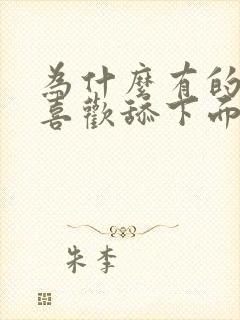 為什麼有的
喜歡舔下面
朱李